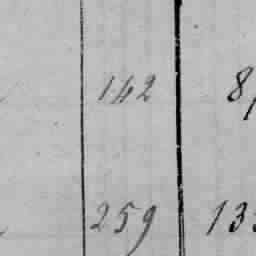 142 8
259 13